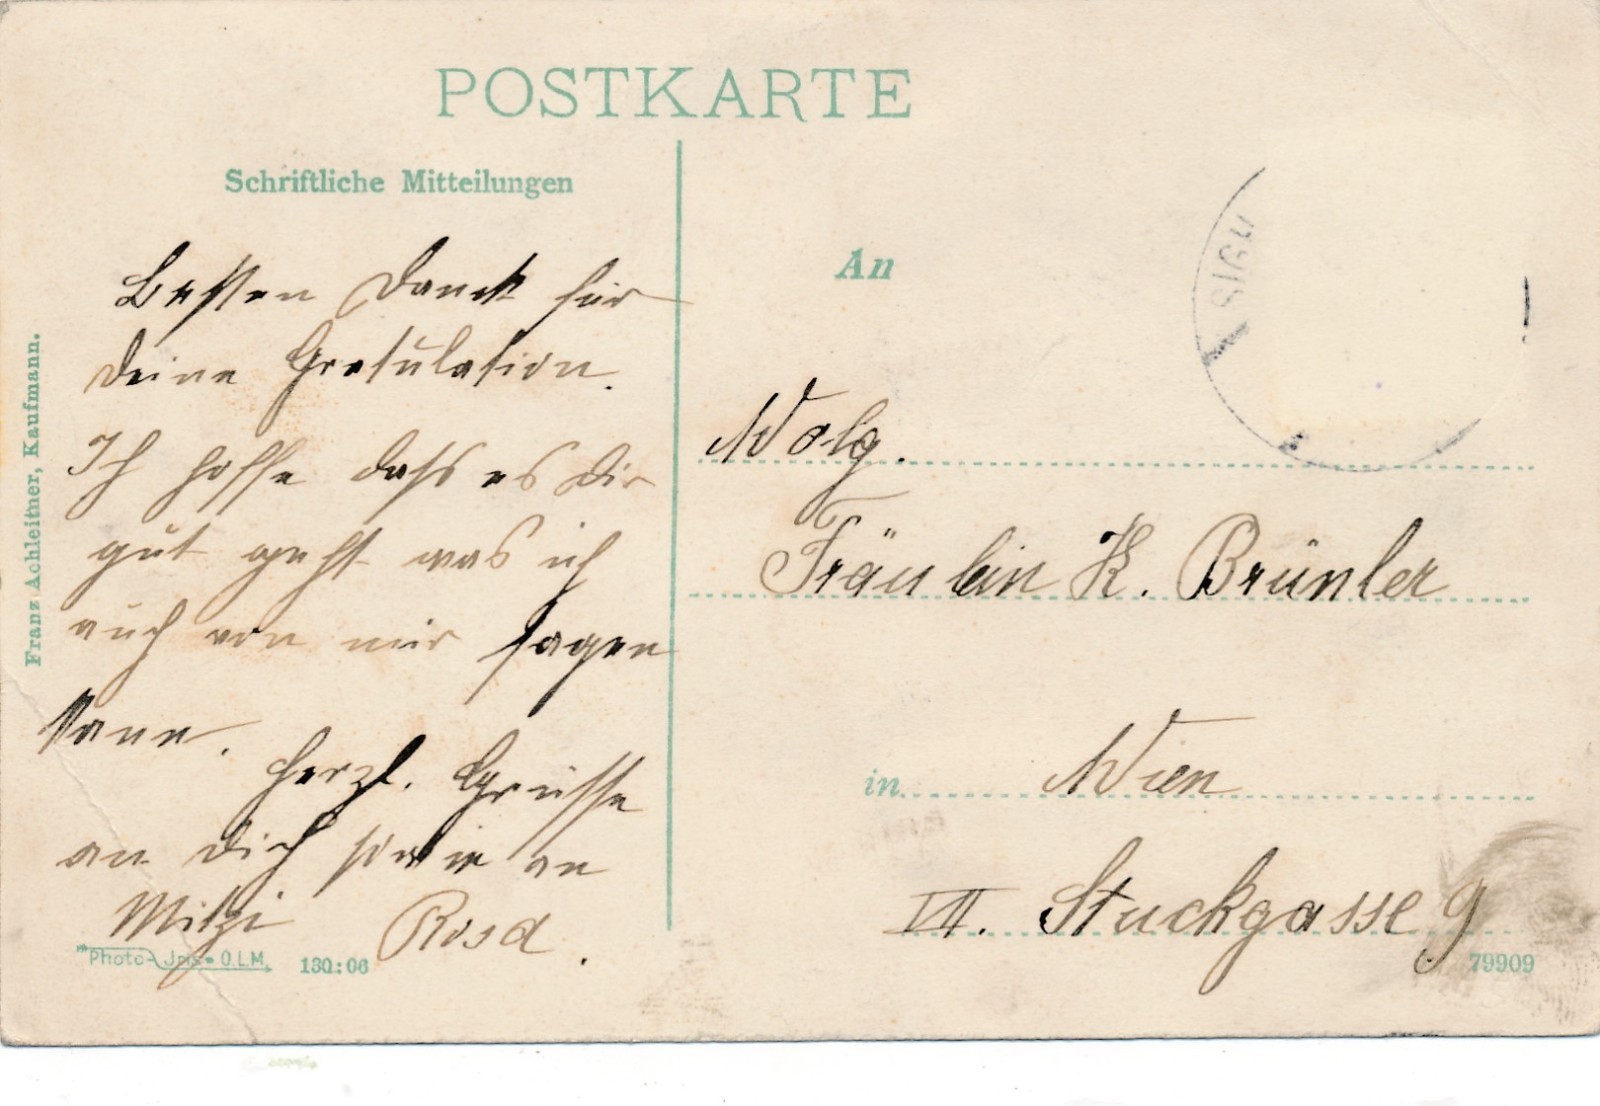 POSTKARTE
Schriftliche Mitteilungen
Besten Danck für
Deine Gratulation.
Ich hoffe dass es Dir
gut geht was ich
auch von mir sagen
kann.
Herzl. Grüsse
an Dich sowie an
Mitzi Rosa.
Franz Achleitner, Kaufmann.
Photo-Jris • O.L.M. 130:06
An
Wolg.
Fräulein K. Brünler
in Wien
VII. Stuckgasse 9
79909